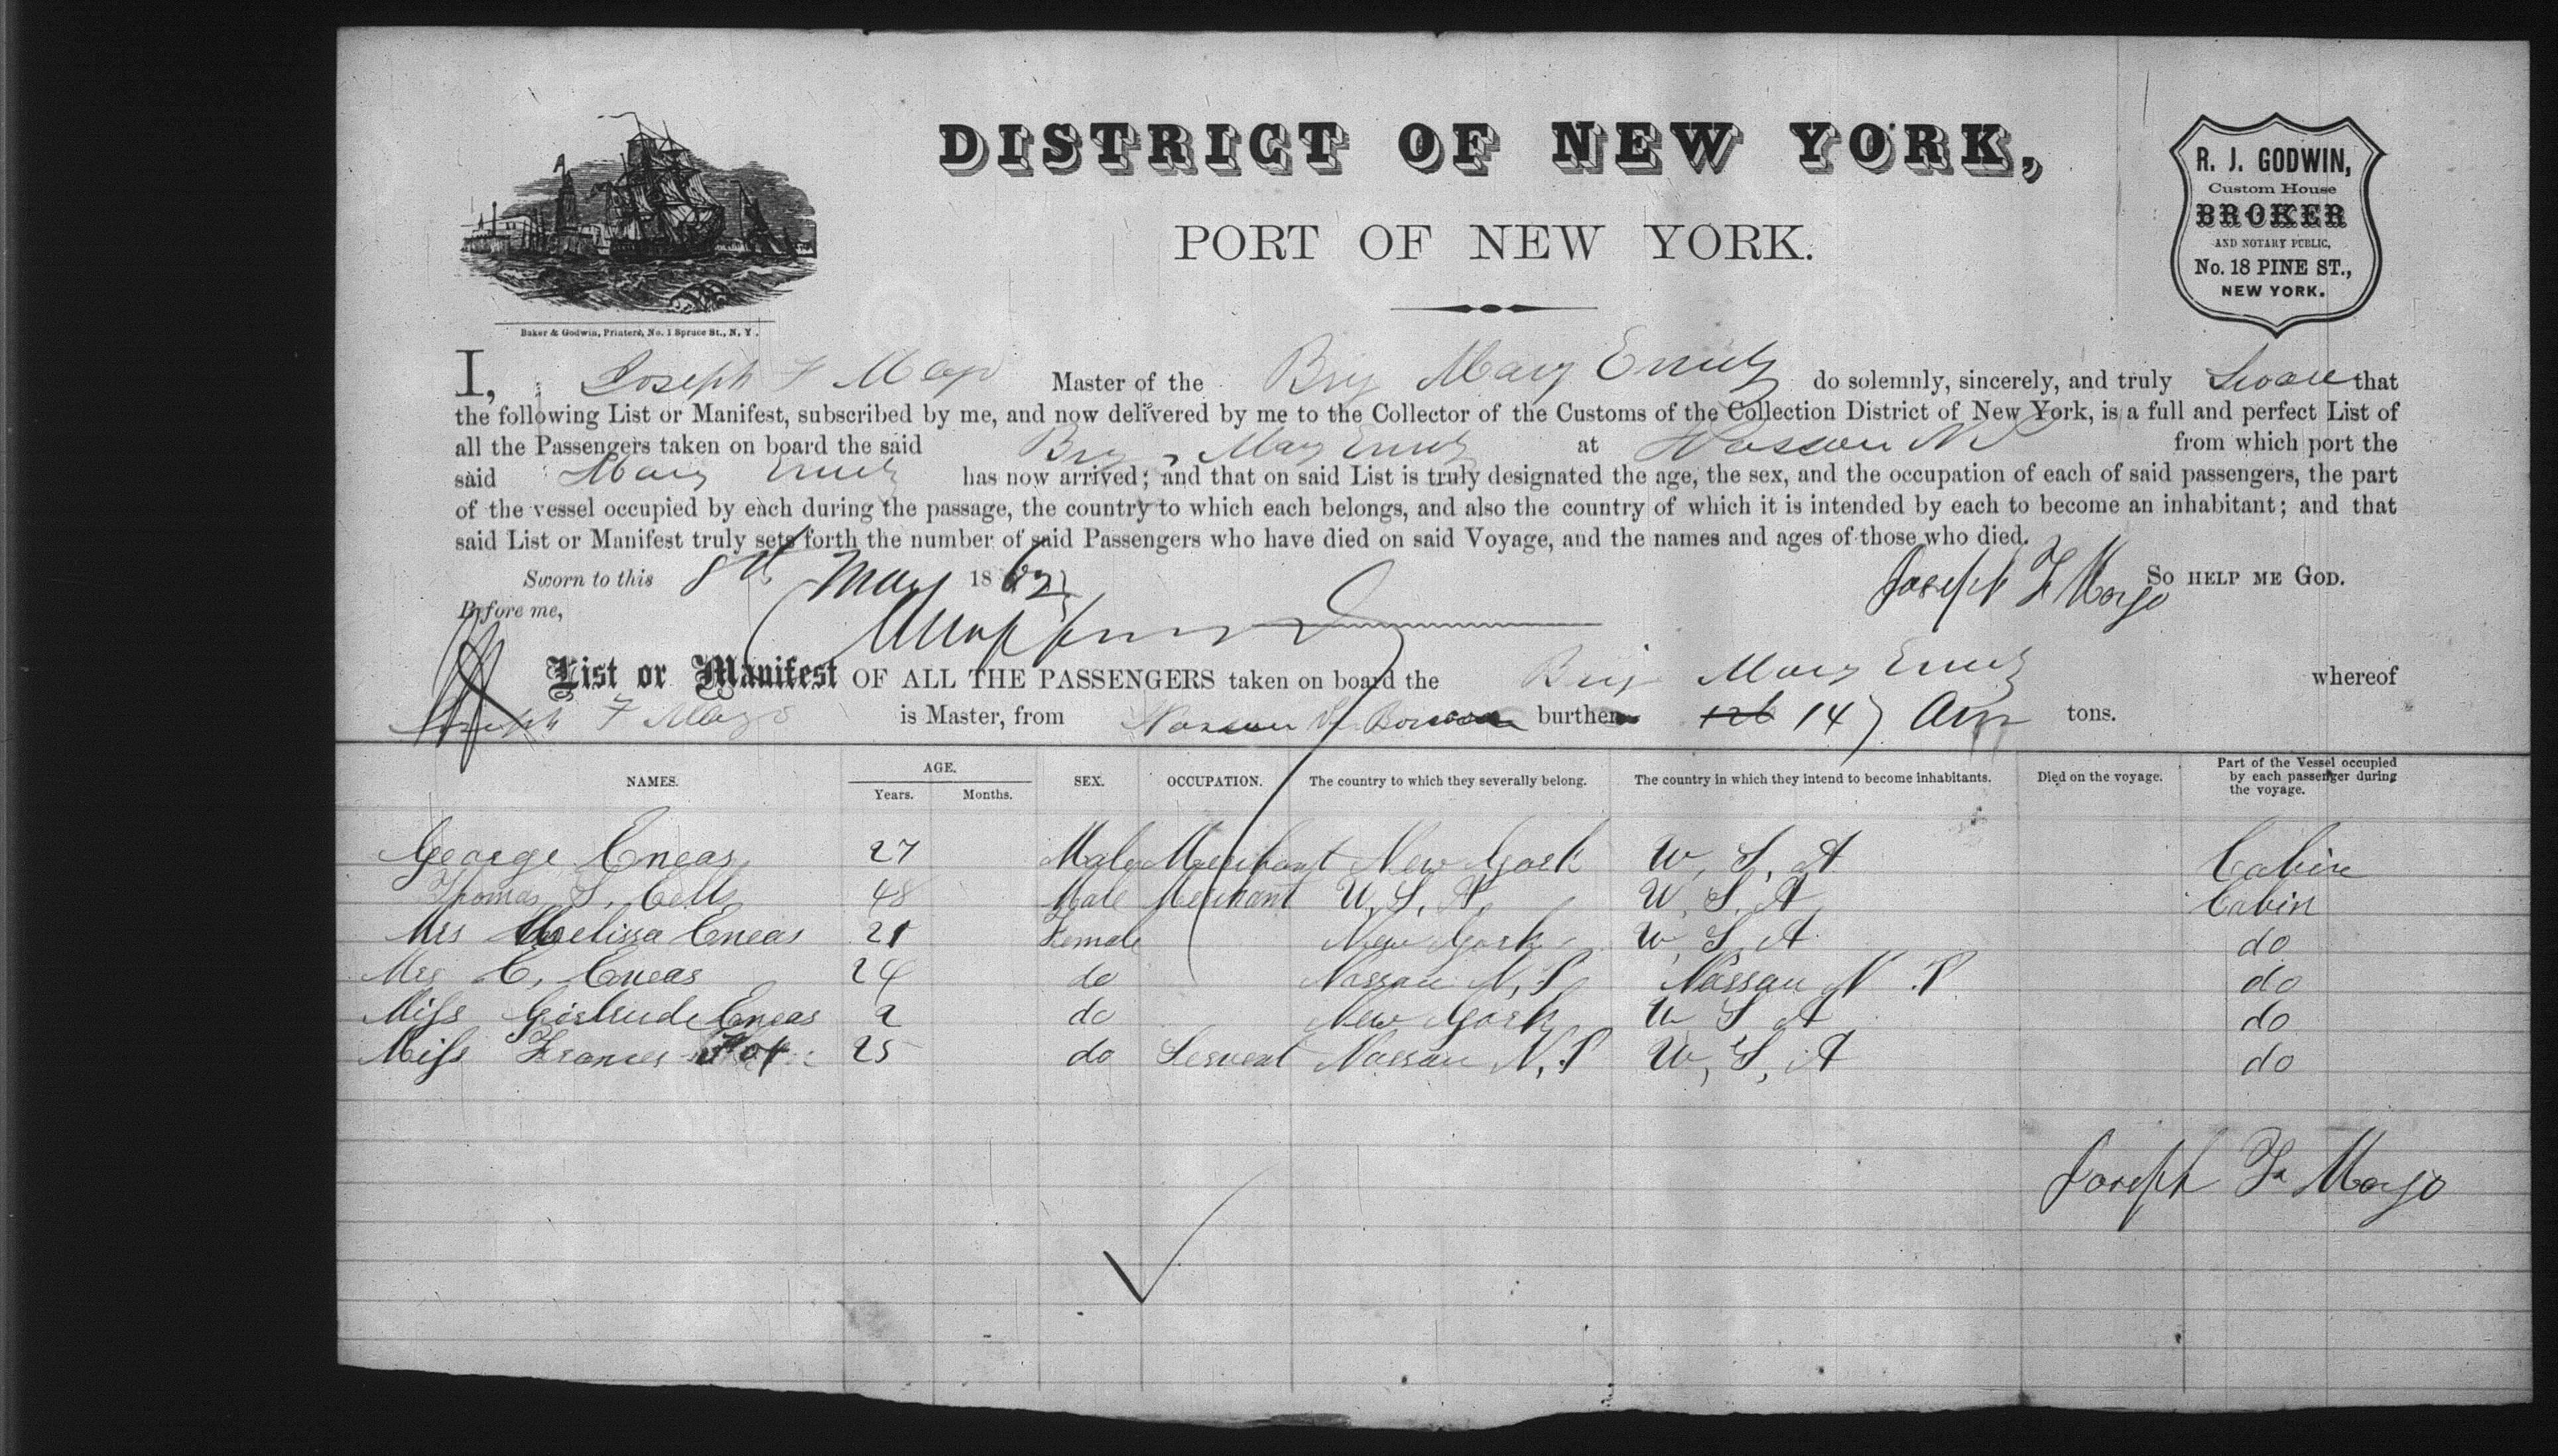 DISTRICT OF NEW YORK,
PORT OF NEW YORK.
Baker & Godwin, Printers, No. 1 Spruce St., N. Y.
R. J. GODWIN,
Custom House
BROKER
AND NOTARY PUBLIC,
No. 18 PINE ST.,
NEW YORK.
I, Joseph F Mayo Master of the Brig Mary Emily do solemnly, sincerely, and truly Swear that
the following List or Manifest, subscribed by me, and now delivered by me to the Collector of the Customs of the Collection District of New York, is a full and perfect List of
all the Passengers taken on board the said Brig Mary Emily at Nassau N P from which port the
said Mary Emily has now arrived; and that on said List is truly designated the age, the sex, and the occupation of each of said passengers, the part
of the vessel occupied by each during the passage, the country to which each belongs, and also the country of which it is intended by each to become an inhabitant; and that
said List or Manifest truly sets forth the number of said Passengers who have died on said Voyage, and the names and ages of those who died.
Sworn to this 8th May 1862 Joseph F Mayo So HELP ME GOD.
Before me,
List or Manifest OF ALL THE PASSENGERS taken on board the Brig Mary Emily whereof
Joseph F Mayo is Master, from Nassau burthen 147 tons.
NAMES. AGE. Years. Months. SEX. OCCUPATION. The country to which they severally belong. The country in which they intend to become inhabitants. Died on the voyage. Part of the Vessel occupied by each passenger during the voyage.
George Eneas 27 Male Merchant New York U, S, A Cabin
Thomas S. 48 Male Merchant U, S, A, U, S, A Cabin
Mrs Melissa Eneas 21 Female New York U, S, A do
Mrs C, Eneas 24 do Nassau N, P Nassau N. P do
Miss Girtrude Eneas 2 do New York U S A do
Miss Frances 25 do Servent Nassau N, P U, S, A do
Joseph F Mayo